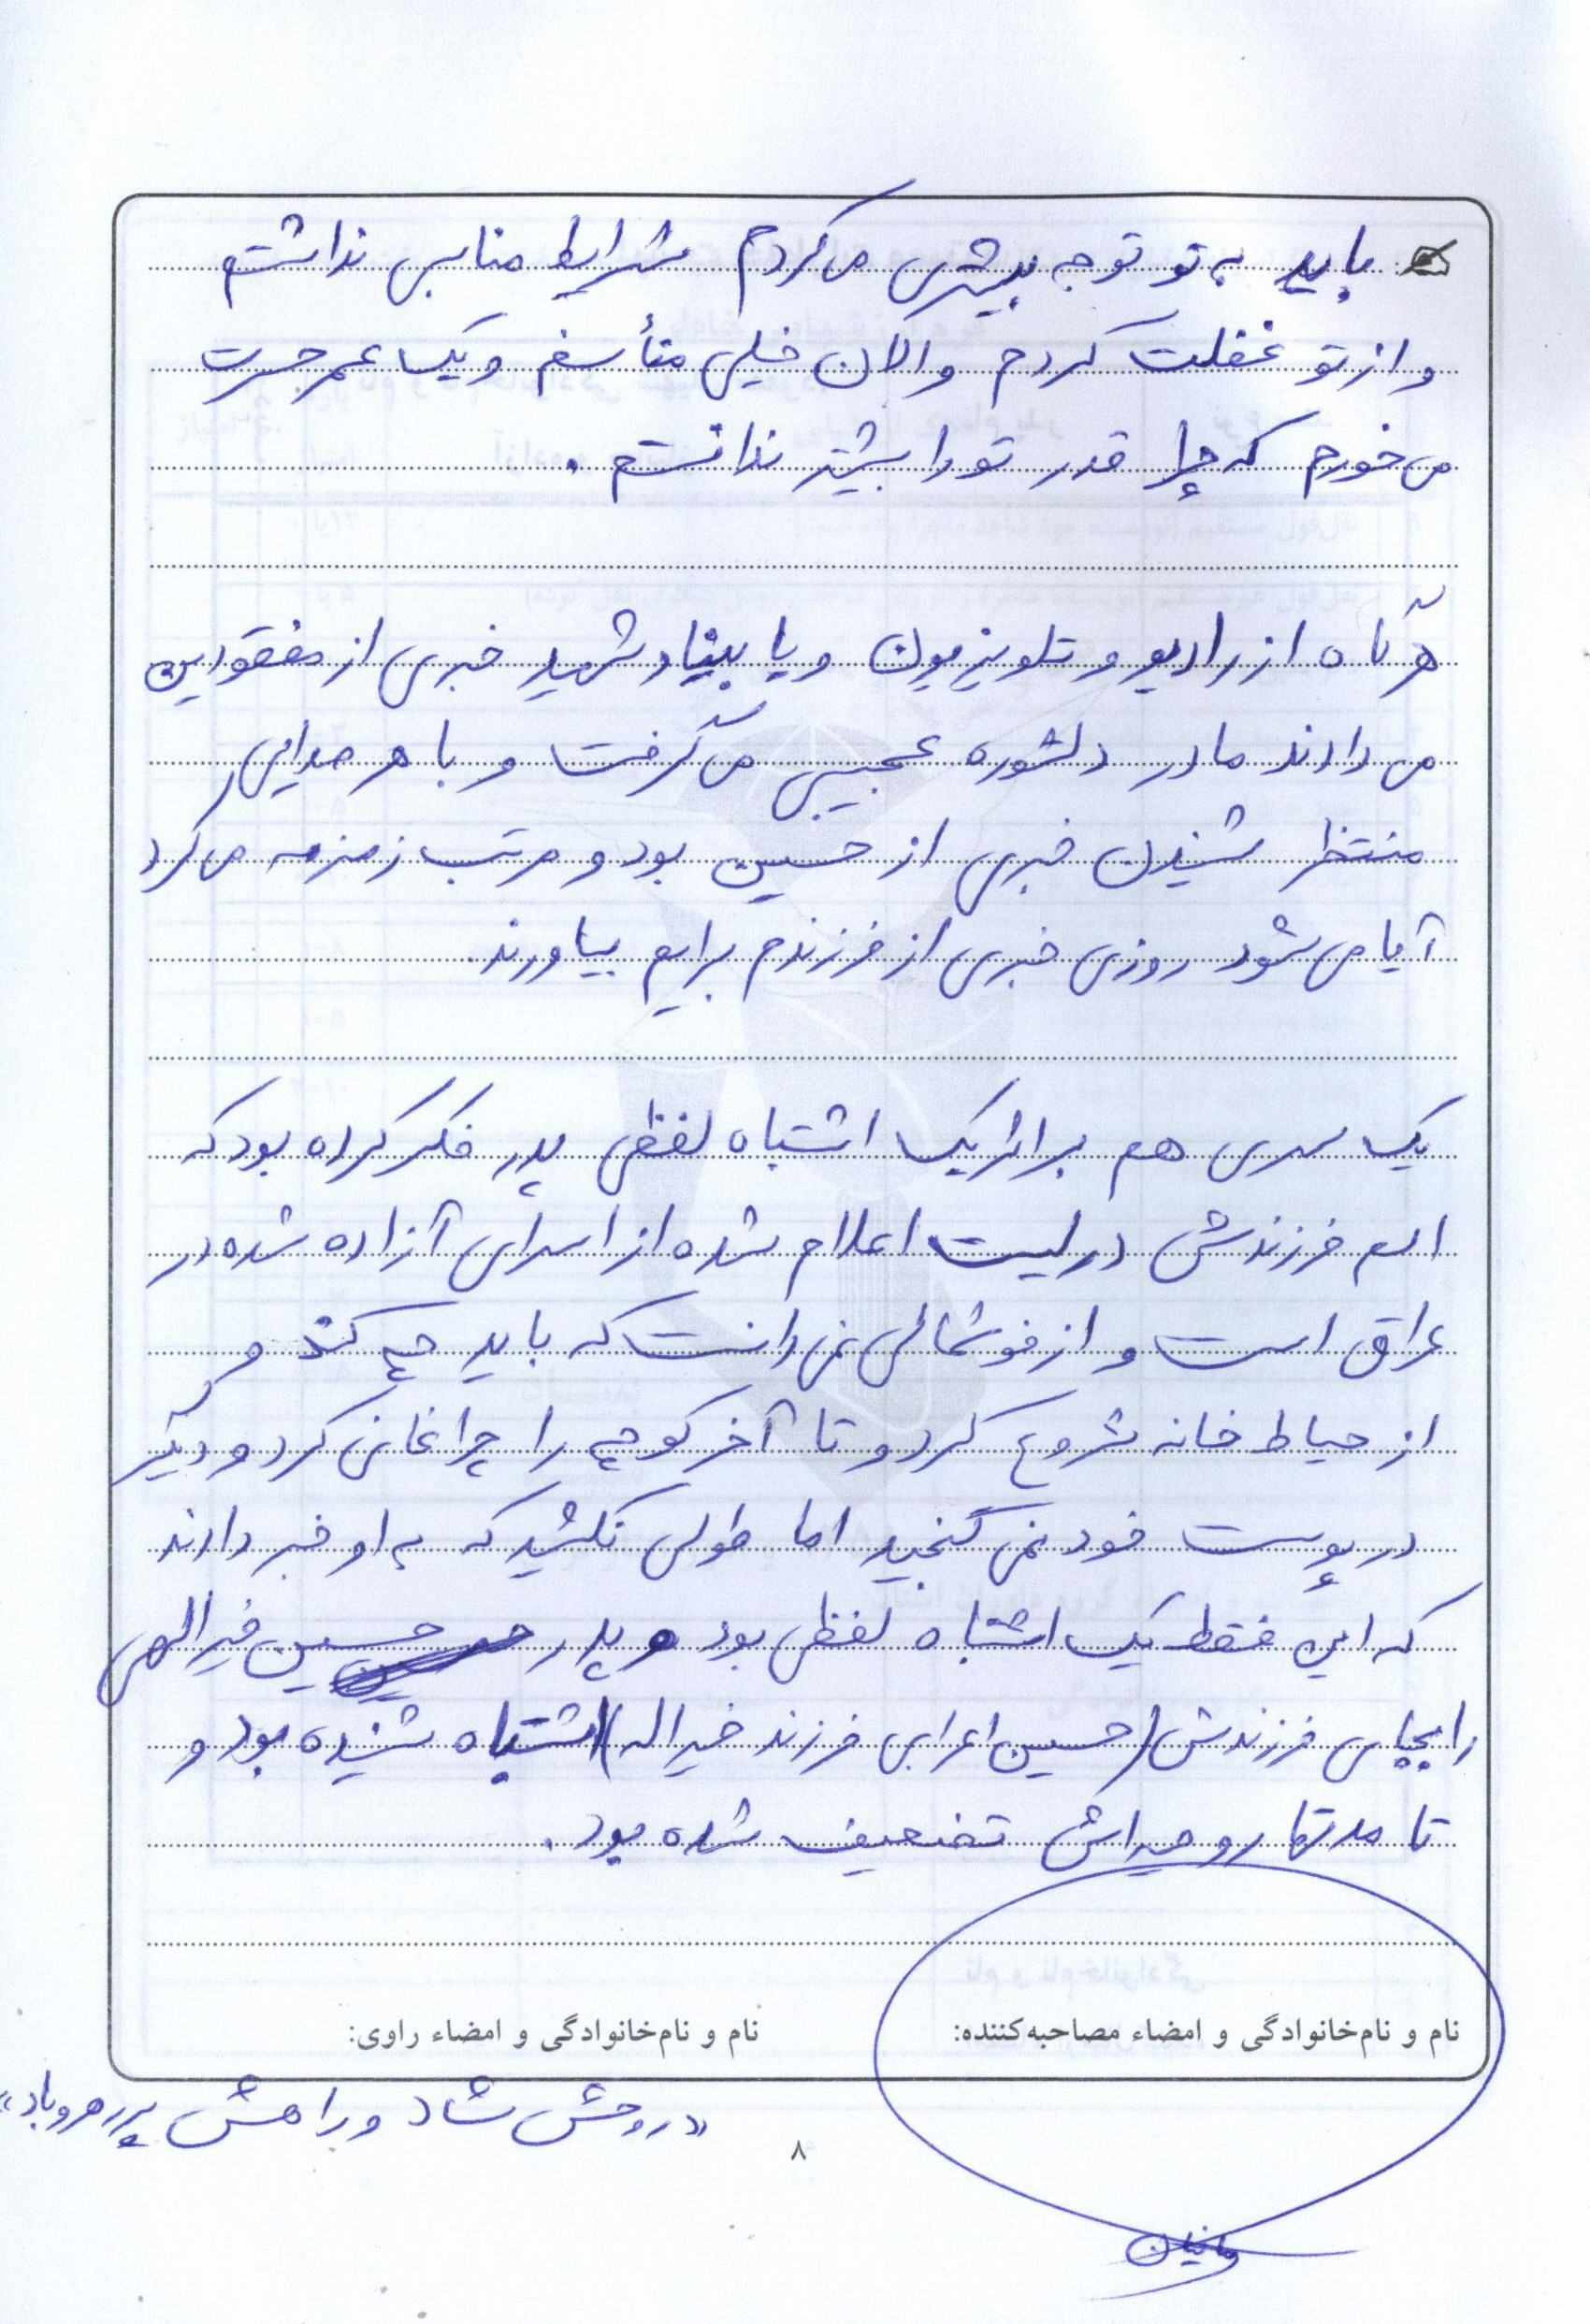 باید به تو توجه بیشتری می‌کردم شرایط مناسبی نداشتم
و از تو غفلت کردم و الان خیلی متأسفم و یک عمر حسرت
می‌خورم که چرا قدر تو را بیشتر ندانستم .
هرگاه از رادیو و تلویزیون و یا بنیاد شهید خبری از مفقودین
می‌دادند مادر دلشوره عجیبی می‌گرفت و با هر صدایی
منتظر شنیدن خبری از حسین بود و مرتب زمزمه می‌کرد
آیا می‌شود روزی خبری از فرزندم برایم بیاورند.
یک سری هم بر اثر یک اشتباه لفظی پدر فکر کرده بود که
اسم فرزندش در لیست اعلام شده از اسرای آزاده شده در
عراق است و از خوشحالی نمی‌دانست که باید چه کند و
از حیاط خانه شروع کرد و تا آخر کوچه را چراغانی کرد و دیگر
در پوست خود نمی‌گنجید اما طولی نکشید که به او خبر دادند
که این فقط یک اشتباه لفظی بود و پدر حسین خیرالهی
را بجای فرزندش (حسین اعرابی فرزند خیراله) اشتباه شنیده بود و
تا مدتها روحیه‌اش تضعیف شده بود .
نام و نام‌خانوادگی و امضاء مصاحبه‌کننده:
نام و نام‌خانوادگی و امضاء راوی:
«روحش شاد و راهش پر رهرو باد»
۸